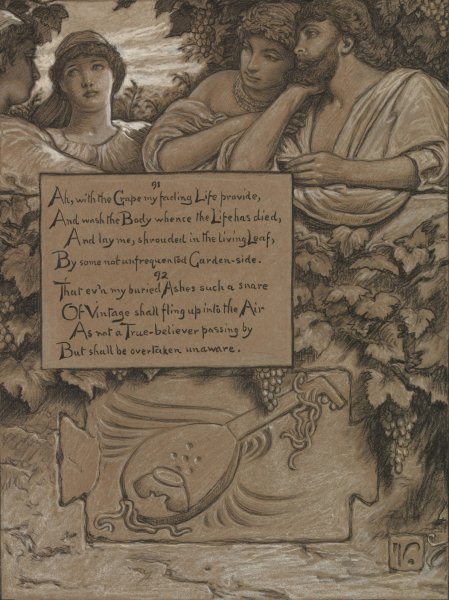 91
Ah, with the Grape my fading Life provide,
And wash the Body whence the Life has died,
And lay me, shrouded in the living Leaf,
By some not unfrequented Garden-side.
92
That ev'n my buried Ashes such a snare
Of Vintage shall fling up into the Air
As not a True-believer passing by
But shall be overtaken unaware.
V